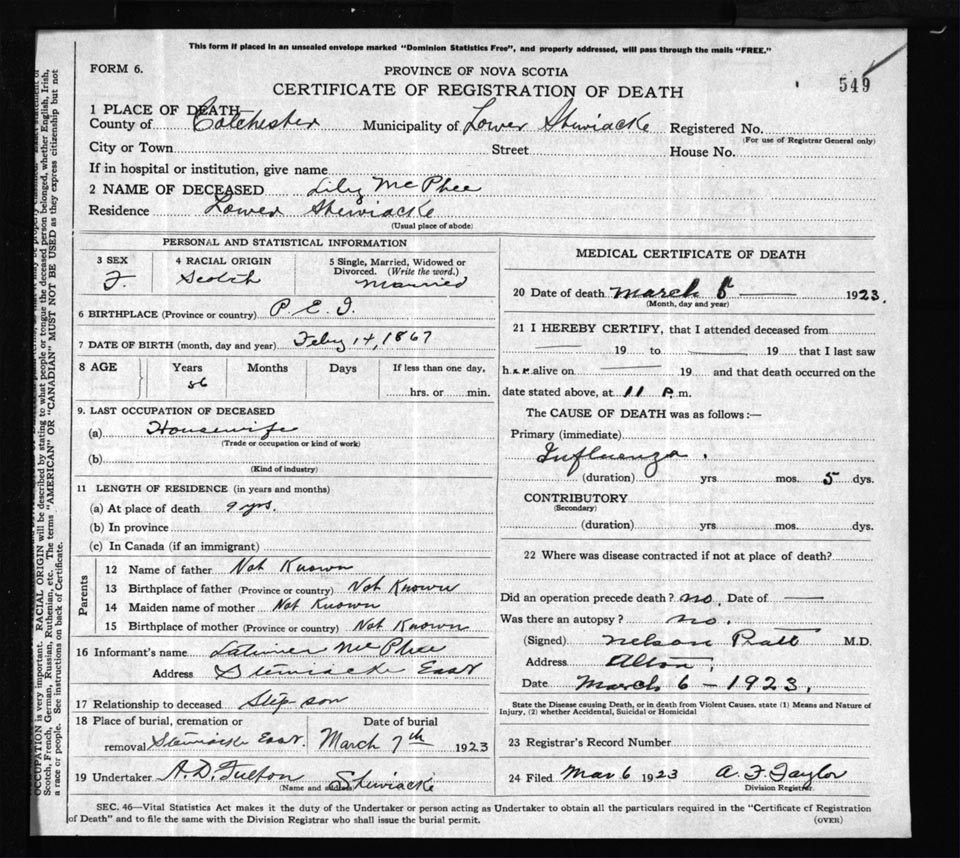 This form if placed in an unsealed envelope marked "Dominion Statistics Free", and properly addressed, will pass through the mails "FREE."
FORM 6.
PROVINCE OF NOVA SCOTIA
549
CERTIFICATE OF REGISTRATION OF DEATH
1 PLACE OF DEATH
County of Colchester Municipality of Lower Stewiacke Registered No.
(For use of Registrar General only)
City or Town Street House No.
If in hospital or institution, give name
2 NAME OF DECEASED Lily McPhee
Residence Lower Stewiacke
(Usual place of abode)
PERSONAL AND STATISTICAL INFORMATION
3 SEX 4 RACIAL ORIGIN 5 Single, Married, Widowed or
Divorced. (Write the word.)
F. Scotch Married
6 BIRTHPLACE (Province or country) P. E. I.
7 DATE OF BIRTH (month, day and year) Feby 14, 1867
8 AGE Years Months Days If less than one day,
56 hrs. or min.
9. LAST OCCUPATION OF DECEASED
(a) Housewife
(Trade or occupation or kind of work)
(b)
(Kind of industry)
11 LENGTH OF RESIDENCE (in years and months)
(a) At place of death 9 yrs.
(b) In province
(c) In Canada (if an immigrant)
Parents
12 Name of father Not Known
13 Birthplace of father (Province or country) Not Known
14 Maiden name of mother Not Known
15 Birthplace of mother (Province or country) Not Known
16 Informant's name Latimer McPhee
Address Stewiacke East
17 Relationship to deceased Step-son
18 Place of burial, cremation or Date of burial
removal Stewiacke East. March 7th 1923
19 Undertaker A. D. Fulton Stewiacke
(Name and address)
MEDICAL CERTIFICATE OF DEATH
20 Date of death March 5 1923.
(Month, day and year)
21 I HEREBY CERTIFY, that I attended deceased from
19 to 19 that I last saw
her alive on 19 and that death occurred on the
date stated above, at 11 P.m.
The CAUSE OF DEATH was as follows:—
Primary (immediate)
Influenza.
(duration) yrs. mos. 5 dys.
CONTRIBUTORY
(Secondary)
(duration) yrs. mos. dys.
22 Where was disease contracted if not at place of death?
Did an operation precede death? no. Date of —
Was there an autopsy? no.
(Signed) Nelson Pratt M.D.
Address Alton,
Date March 6 - 1923.
State the Disease causing Death, or in death from Violent Causes, state (1) Means and Nature of
Injury, (2) whether Accidental, Suicidal or Homicidal
23 Registrar's Record Number
24 Filed Mar 6 1923 A. F. Taylor
Division Registrar.
SEC. 46—Vital Statistics Act makes it the duty of the Undertaker or person acting as Undertaker to obtain all the particulars required in the "Certificate of Registration
of Death" and to file the same with the Division Registrar who shall issue the burial permit. (OVER)
OCCUPATION is very important. RACIAL ORIGIN will be described by stating to what people or tongue the deceased person belonged, whether English, Irish,
Scotch, French, German, Russian, Ruthenian, etc. The terms "AMERICAN" OR "CANADIAN" MUST NOT BE USED as they express citizenship but not
a race or people. See instructions on back of Certificate.